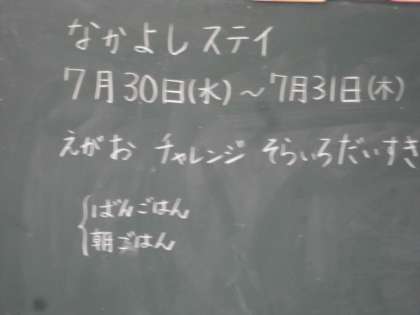 なかよしステイ
7月30日(水)～7月31日(木)
えがお チャレンジ そらいろだいすき
ばんごはん
朝ごはん